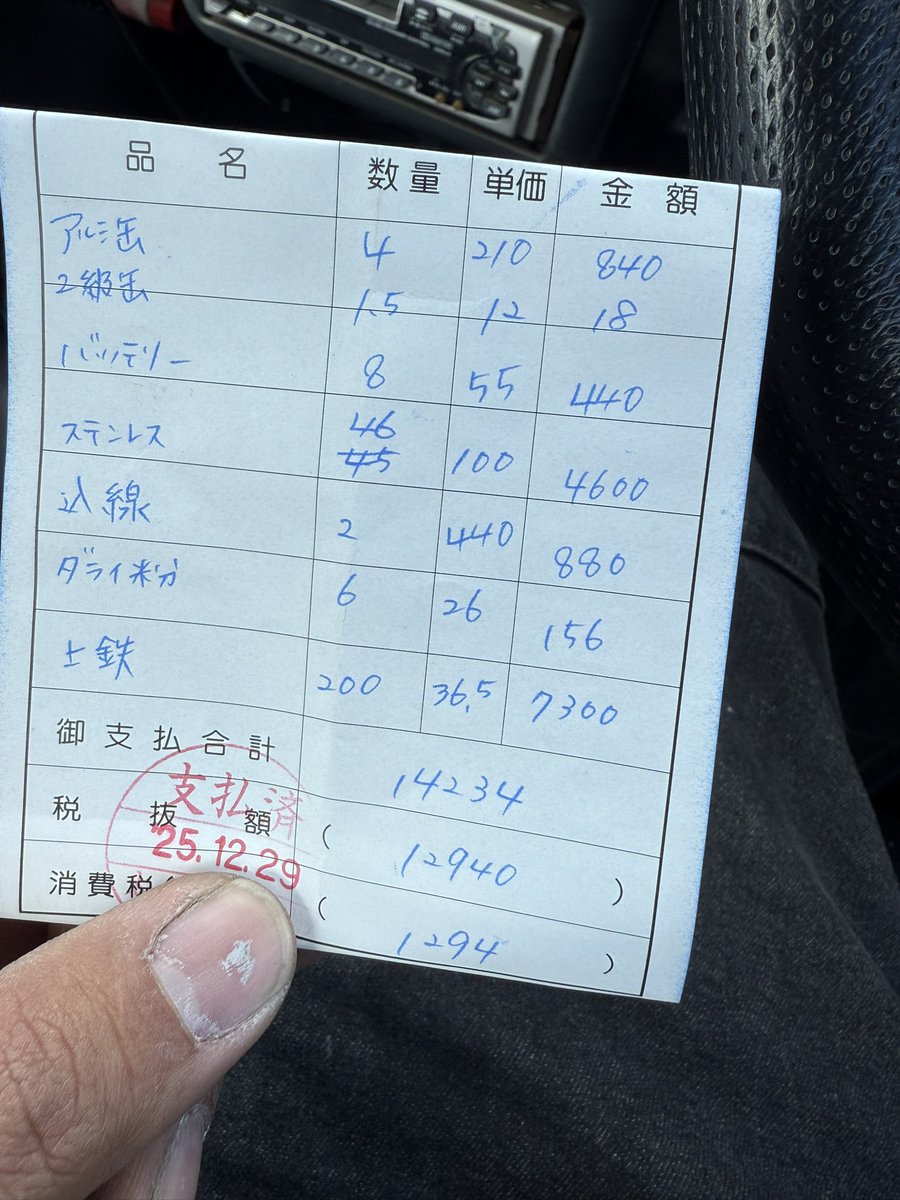 品名 数量 単価 金額
アルミ缶 4 210 840
2級缶 1.5 12 18
バッテリー 8 55 440
ステンレス 46 100 4600
45
込線 2 440 880
ダライ粉 6 26 156
上鉄 200 36.5 7300
御支払合計 14234
税抜額 ( 12940 )
消費税( ( 1294 )
支払済
'25.12.29